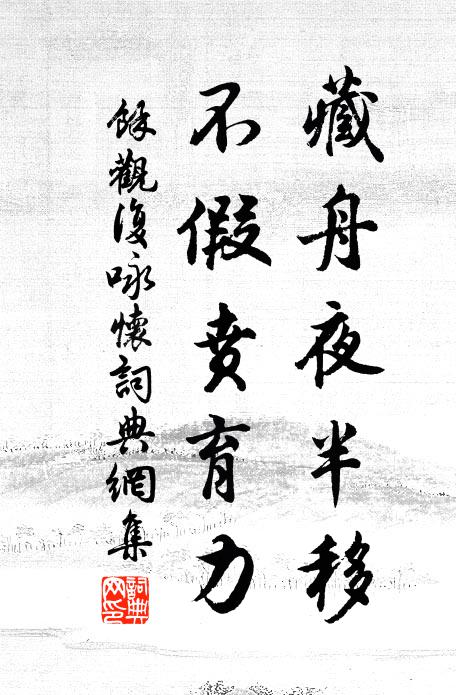 藏舟夜半移
不假賁育力
餘觀復咏懷詞典網集
詞典